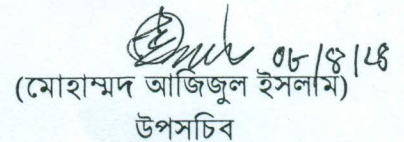 ০৮/৪/২৪
(মোহাম্মদ আজিজুল ইসলাম)
উপসচিব